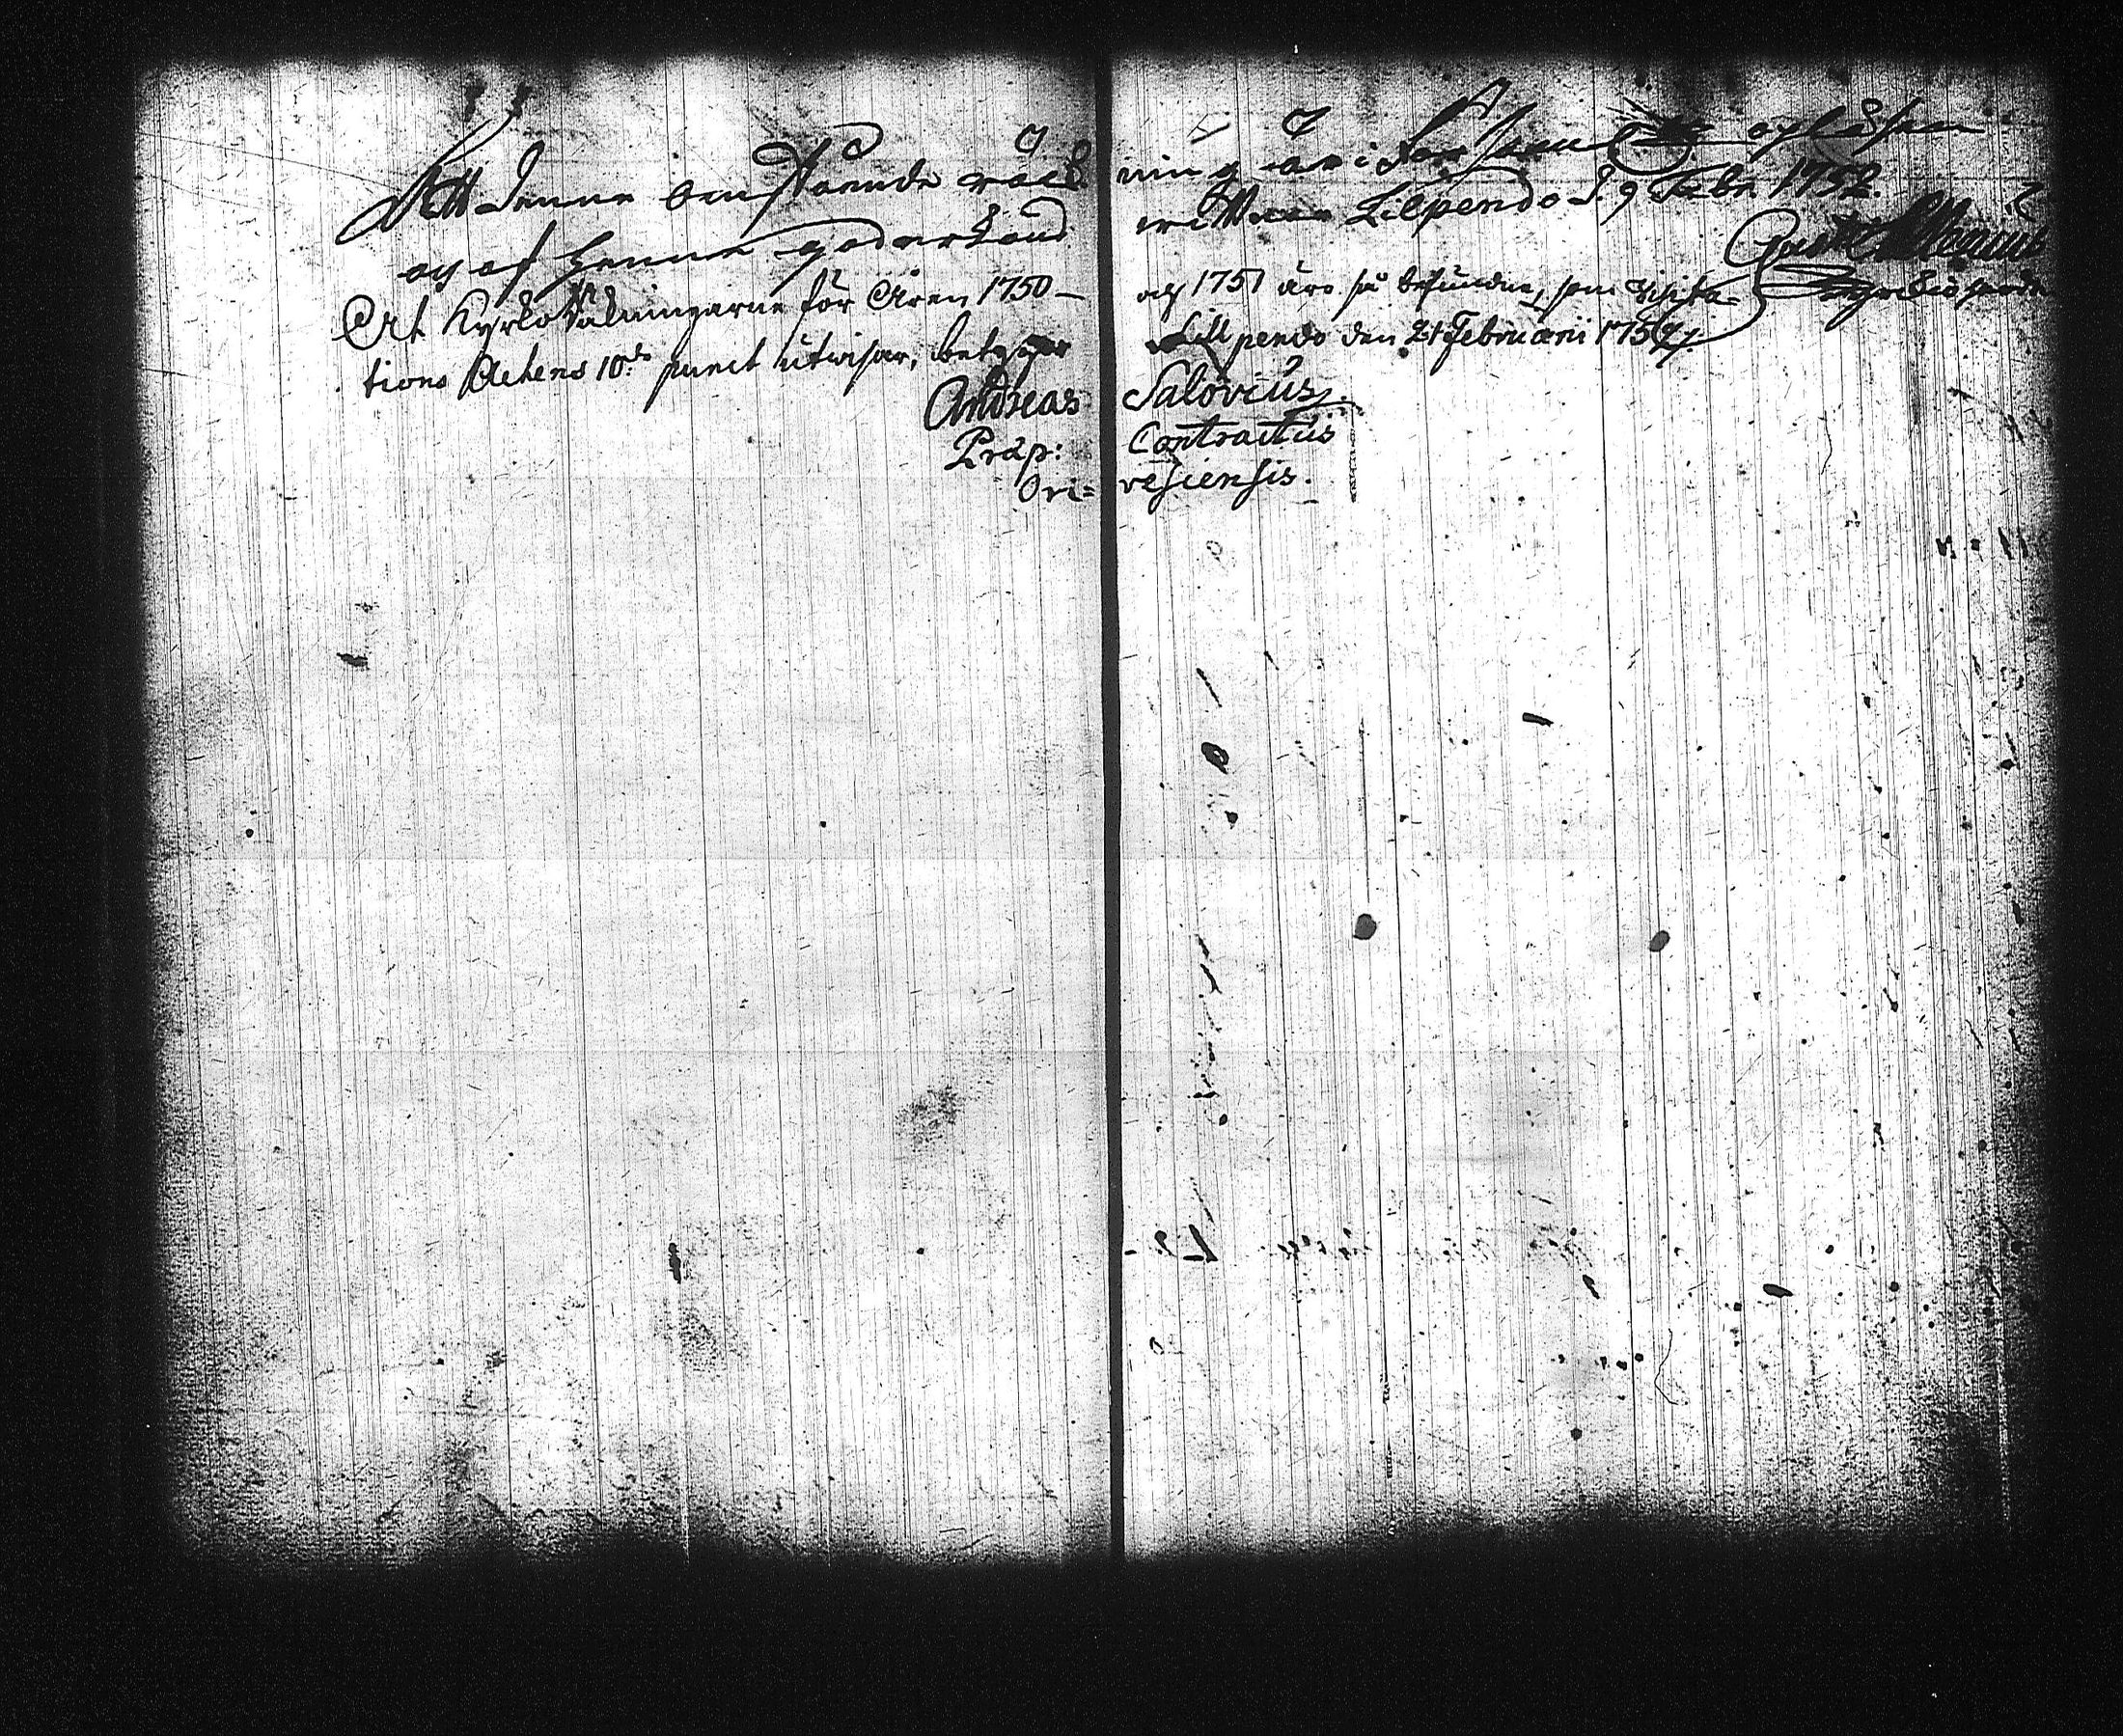 Att denna ofanstaende räck
ning är i församl: oplåsen
och af henne goderkänd
wittnar Lilpendo d. 9 Febr. 1752.
Gust:
Att Kyrko Räkningarne för Åren 1750 –
och 1751 äro så befundne, som Visita-
tions Actens 10:de punct utwisar, betygar
Lillpendo den 21 Februarii 175
Andreas Salovius.
Præp: Contractus
Ori= vesiensis.